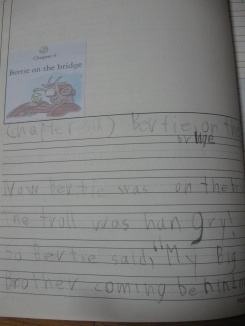 Chapter 6
Bertie on the bridge
(Chapter six) Bertie on the
bridge
Now Bertie was on the
The troll was hangry!
So Bertie said, "My Big
Brother coming behind